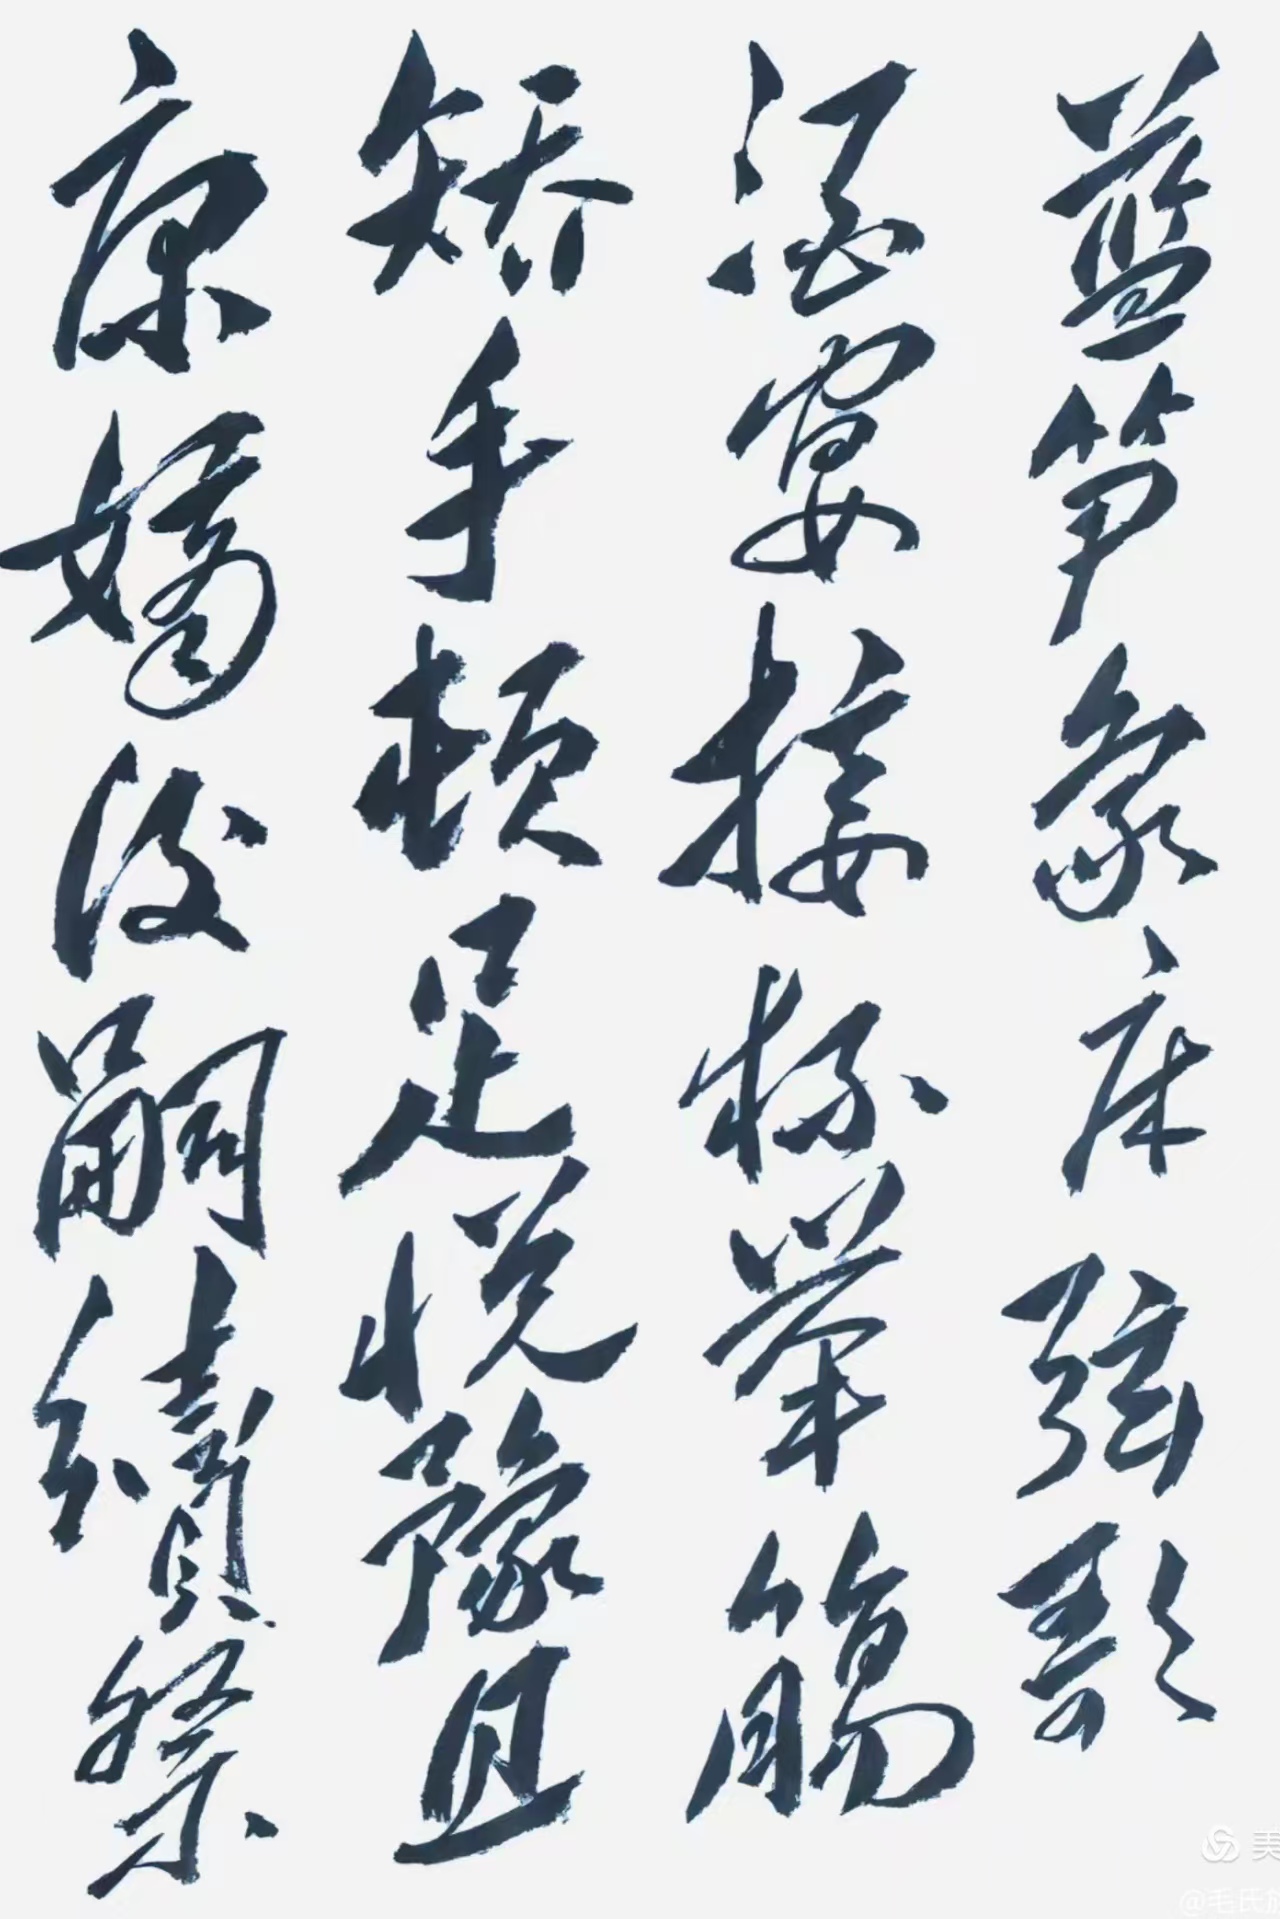 蓝笋象床弦歌
酒宴接杯举觞
矫手顿足悦豫且
康嫡后嗣续祭
美
@毛氏